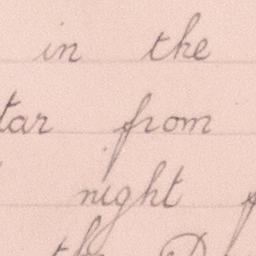 in the
tar from
night
the